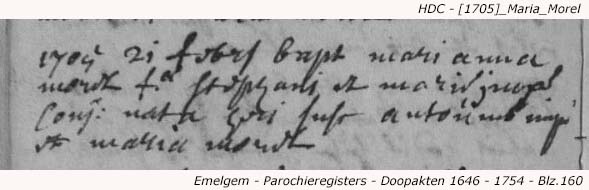 HDC - [1705]_Maria_Morel
1705 21 febrs bapt mari anna
morel fa stephani et marie
conj: nata heri susc antonius
et maria morel
Emelgem - Parochieregisters - Doopakten 1646 - 1754 - Blz.160